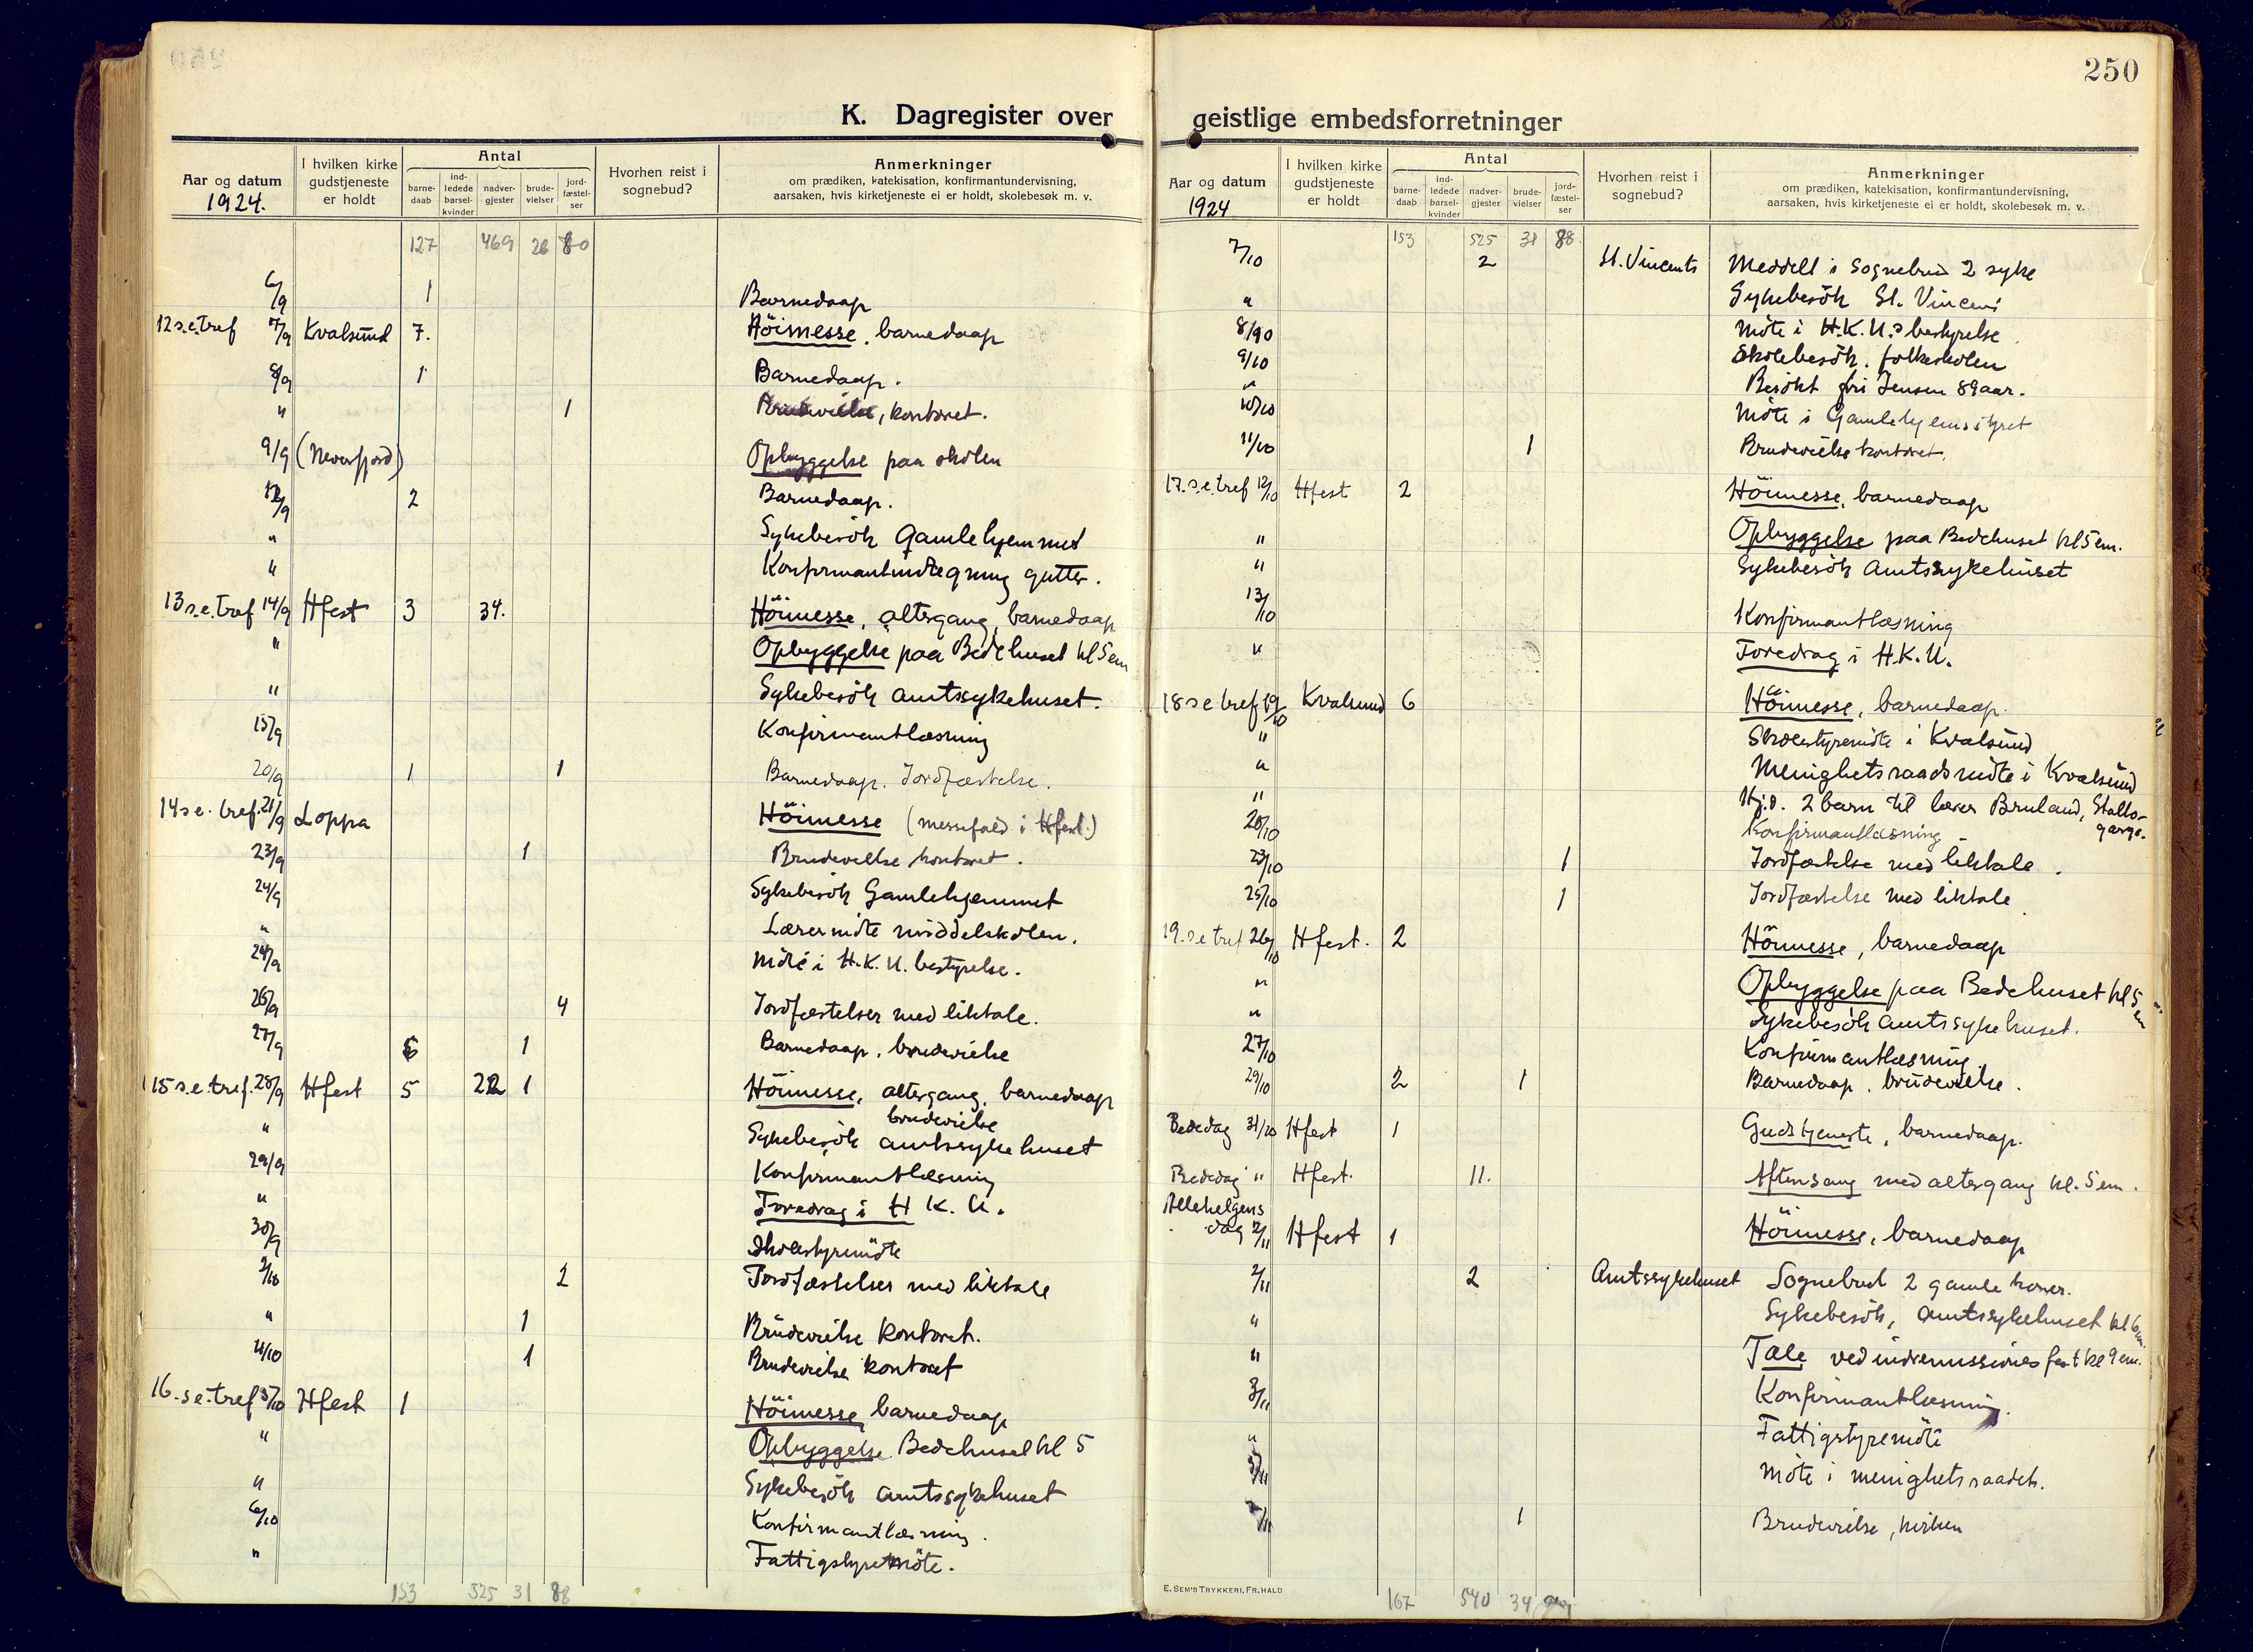 250
K. Dagregister over geistlige embedsforretninger
Aar og datum
1924.
I hvilken kirke gudstjeneste er holdt
Antal
barne-daab
ind-ledede barsel-kvinder
nadver-gjester
brude-vielser
jord-fæstel-ser
Hvorhen reist i sognebud?
Anmerkninger
om prædiken, katekisation, konfirmantundervisning,
aarsaken, hvis kirketjeneste ei er holdt, skolebesøk m. v.
127 469 26 80
6/9 1 Barnedaap
12 s.e.tref 7/9 Kvalsund 7. Höimesse, barnedaap
8/9 1 Barnedaap.
" 1 kontoret.
9/9 (Neverfjord) Opbyggelse paa skolen
12/9 2 Barnedaap.
" Sykebesök Gamlehjemmet
" Konfirmantindtegning gutter.
13 s.e.tref 14/9 Hfest 3 34. Höimesse, altergang, barnedaap
" Opbyggelse paa Bedehuset kl 5 em
" Sykebesök amtssykehuset.
15/9 Konfirmantlæsning
20/9 1 1 Barnedaap. Jordfæstelse.
14 s.e. tref. 21/9 Loppa Höimesse (messefald i Hfest.)
23/9 1 Brudevielse kontoret.
24/9 Sykebesök Gamlehjemmet
" Lærermöte middelskolen.
24/9 Möte i H.K.U. bestyrelse.
26/9 4 Jordfæstelser med liktale.
27/9 6 1 Barnedaap, brudevielse
15 s.e.tref. 28/9 Hfest 5 22 1 Höimesse, altergang, barnedaap
brudevielse
" Sykebesök amtssykehuset
29/9 Konfirmantlæsning
" Foredrag i H K. U.
30/9 Skolestyremöte
2/10 2 Jordfæstelser med liktale
" 1 Brudevielse kontoret.
4/10 1 Brudevielse kontoret
16. s.e.tref 5/10 Hfest 1 Höimesse barnedaap
" Opbyggelse Bedehuset kl 5
" Sykebesök amtssykehuset
6/10 Konfirmantlæsning.
" Fattigstyremöte.
153 525 31 88
Aar og datum
1924
I hvilken kirke gudstjeneste er holdt
Antal
barne-daab
ind-ledede barsel-kvinder
nadver-gjester
brude-vielser
jord-fæstel-ser
Hvorhen reist i sognebud?
Anmerkninger
om prædiken, katekisation, konfirmantundervisning,
aarsaken, hvis kirketjeneste ei er holdt, skolebesøk m. v.
153 525 31 88
7/10 2 St. Vincents Meddelt i Sognebud 2 syke
" Sykebesök St. Vincent
8/10 Möte i H.K.U.s bestyrelse.
9/10 Skolebesök, folkeskolen
" Besökt fru Jensen 89 aar.
10/10 Möte i Gamlehjemsstyret
11/10 1 Brudevielse kontoret.
17. s.e.tref 12/10 Hfest 2 Höimesse, barnedaap
" Opbyggelse paa Bedehuset kl 5 em.
" Sykebesök Amtssykehuset
13/10 Konfirmantlæsning
" Foredrag i H.K.U.
18 s e tref 19/10 Kvalsund 6 Höimesse, barnedaap.
" Skolestyremöte i Kvalsund
" Menighetsraadsmöte i Kvalsund
" Hj.d. 2 barn til lærer Bruland, Stallo-
gargo.
20/10 Konfirmantlæsning
23/10 1 Jordfæstelse med liktale.
25/10 1 Jordfæstelse med liktale
19. s.e tref 26/10 Hfest. 2 Höimesse, barnedaap
" Opbyggelse paa Bedehuset kl 5 em
" Sykebesök Amtssykehuset.
27/10 Konfirmantlæsning
29/10 2 1 Barnedaap, brudevielse.
Bededag 31/10 Hfest 1 Gudstjeneste, barnedaap.
Bededag " Hfest. 11. Aftensang med altergang kl. 5 em.
Allehelgens
dag 2/11 Hfest 1 Höimesse, barnedaap
2/11 2 Amtssykehuset Sognebud 2 gamle koner.
" Sykebesök, amtssykehuset kl 6 em.
" Tale ved indremissiones fest kl 9 em.
3/11 Konfirmantlæsning.
" Fattigstyremöte
5/11 Möte i menighetsraadet.
/11 1 Brudevielse, kirken
E. SEM'S TRYKKERI, FR.HALD
167 540 34